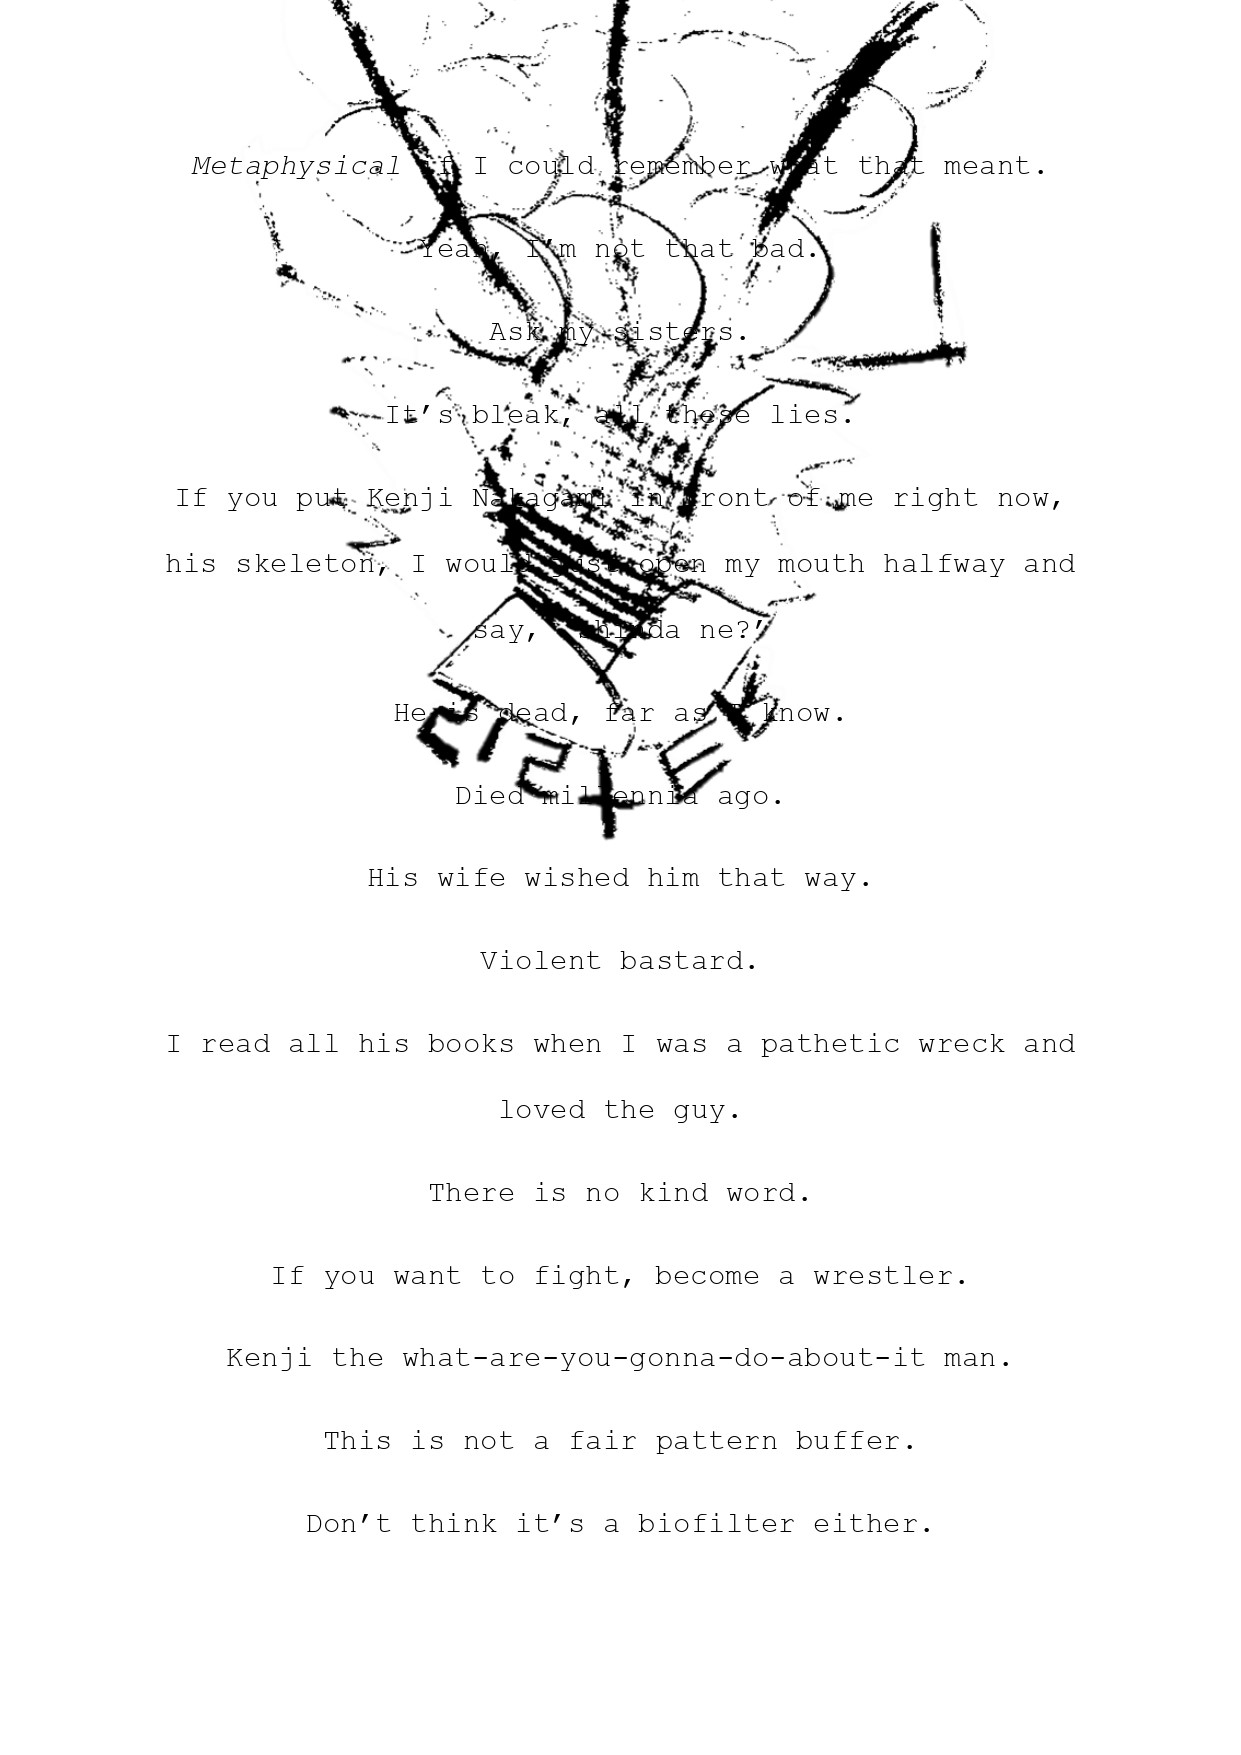 Metaphysical if I could remember what that meant.
Yeah, I’m not that bad.
Ask my sisters.
It’s bleak, all these lies.
If you put Kenji Nakagami in front of me right now,
his skeleton, I would just open my mouth halfway and
say, ‘Shinda ne?’
He is dead, far as I know.
Died millennia ago.
His wife wished him that way.
Violent bastard.
I read all his books when I was a pathetic wreck and
loved the guy.
There is no kind word.
If you want to fight, become a wrestler.
Kenji the what-are-you-gonna-do-about-it man.
This is not a fair pattern buffer.
Don’t think it’s a biofilter either.